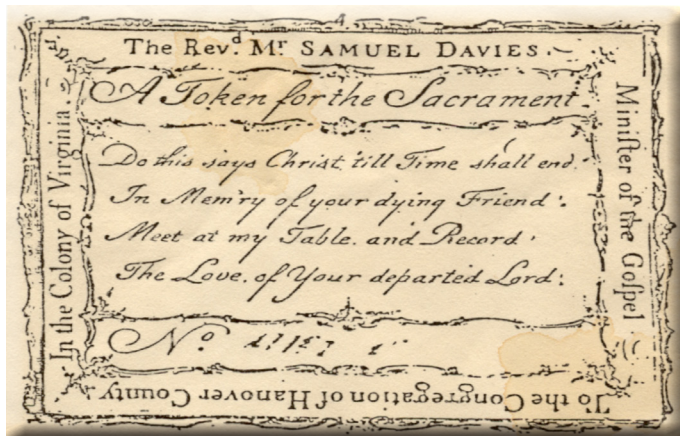 The Rev.d Mr SAMUEL DAVIES.
Miniſter of the Goſpel
To the Congregation of Hanover County,
In the Colony of Virginia.
A Token for the Sacrament.
Do this says Christ, 'till Time shall end.
In Mem'ry of your dying Friend:
Meet at my Table. and Record
The Love. of Your departed Lord:
No